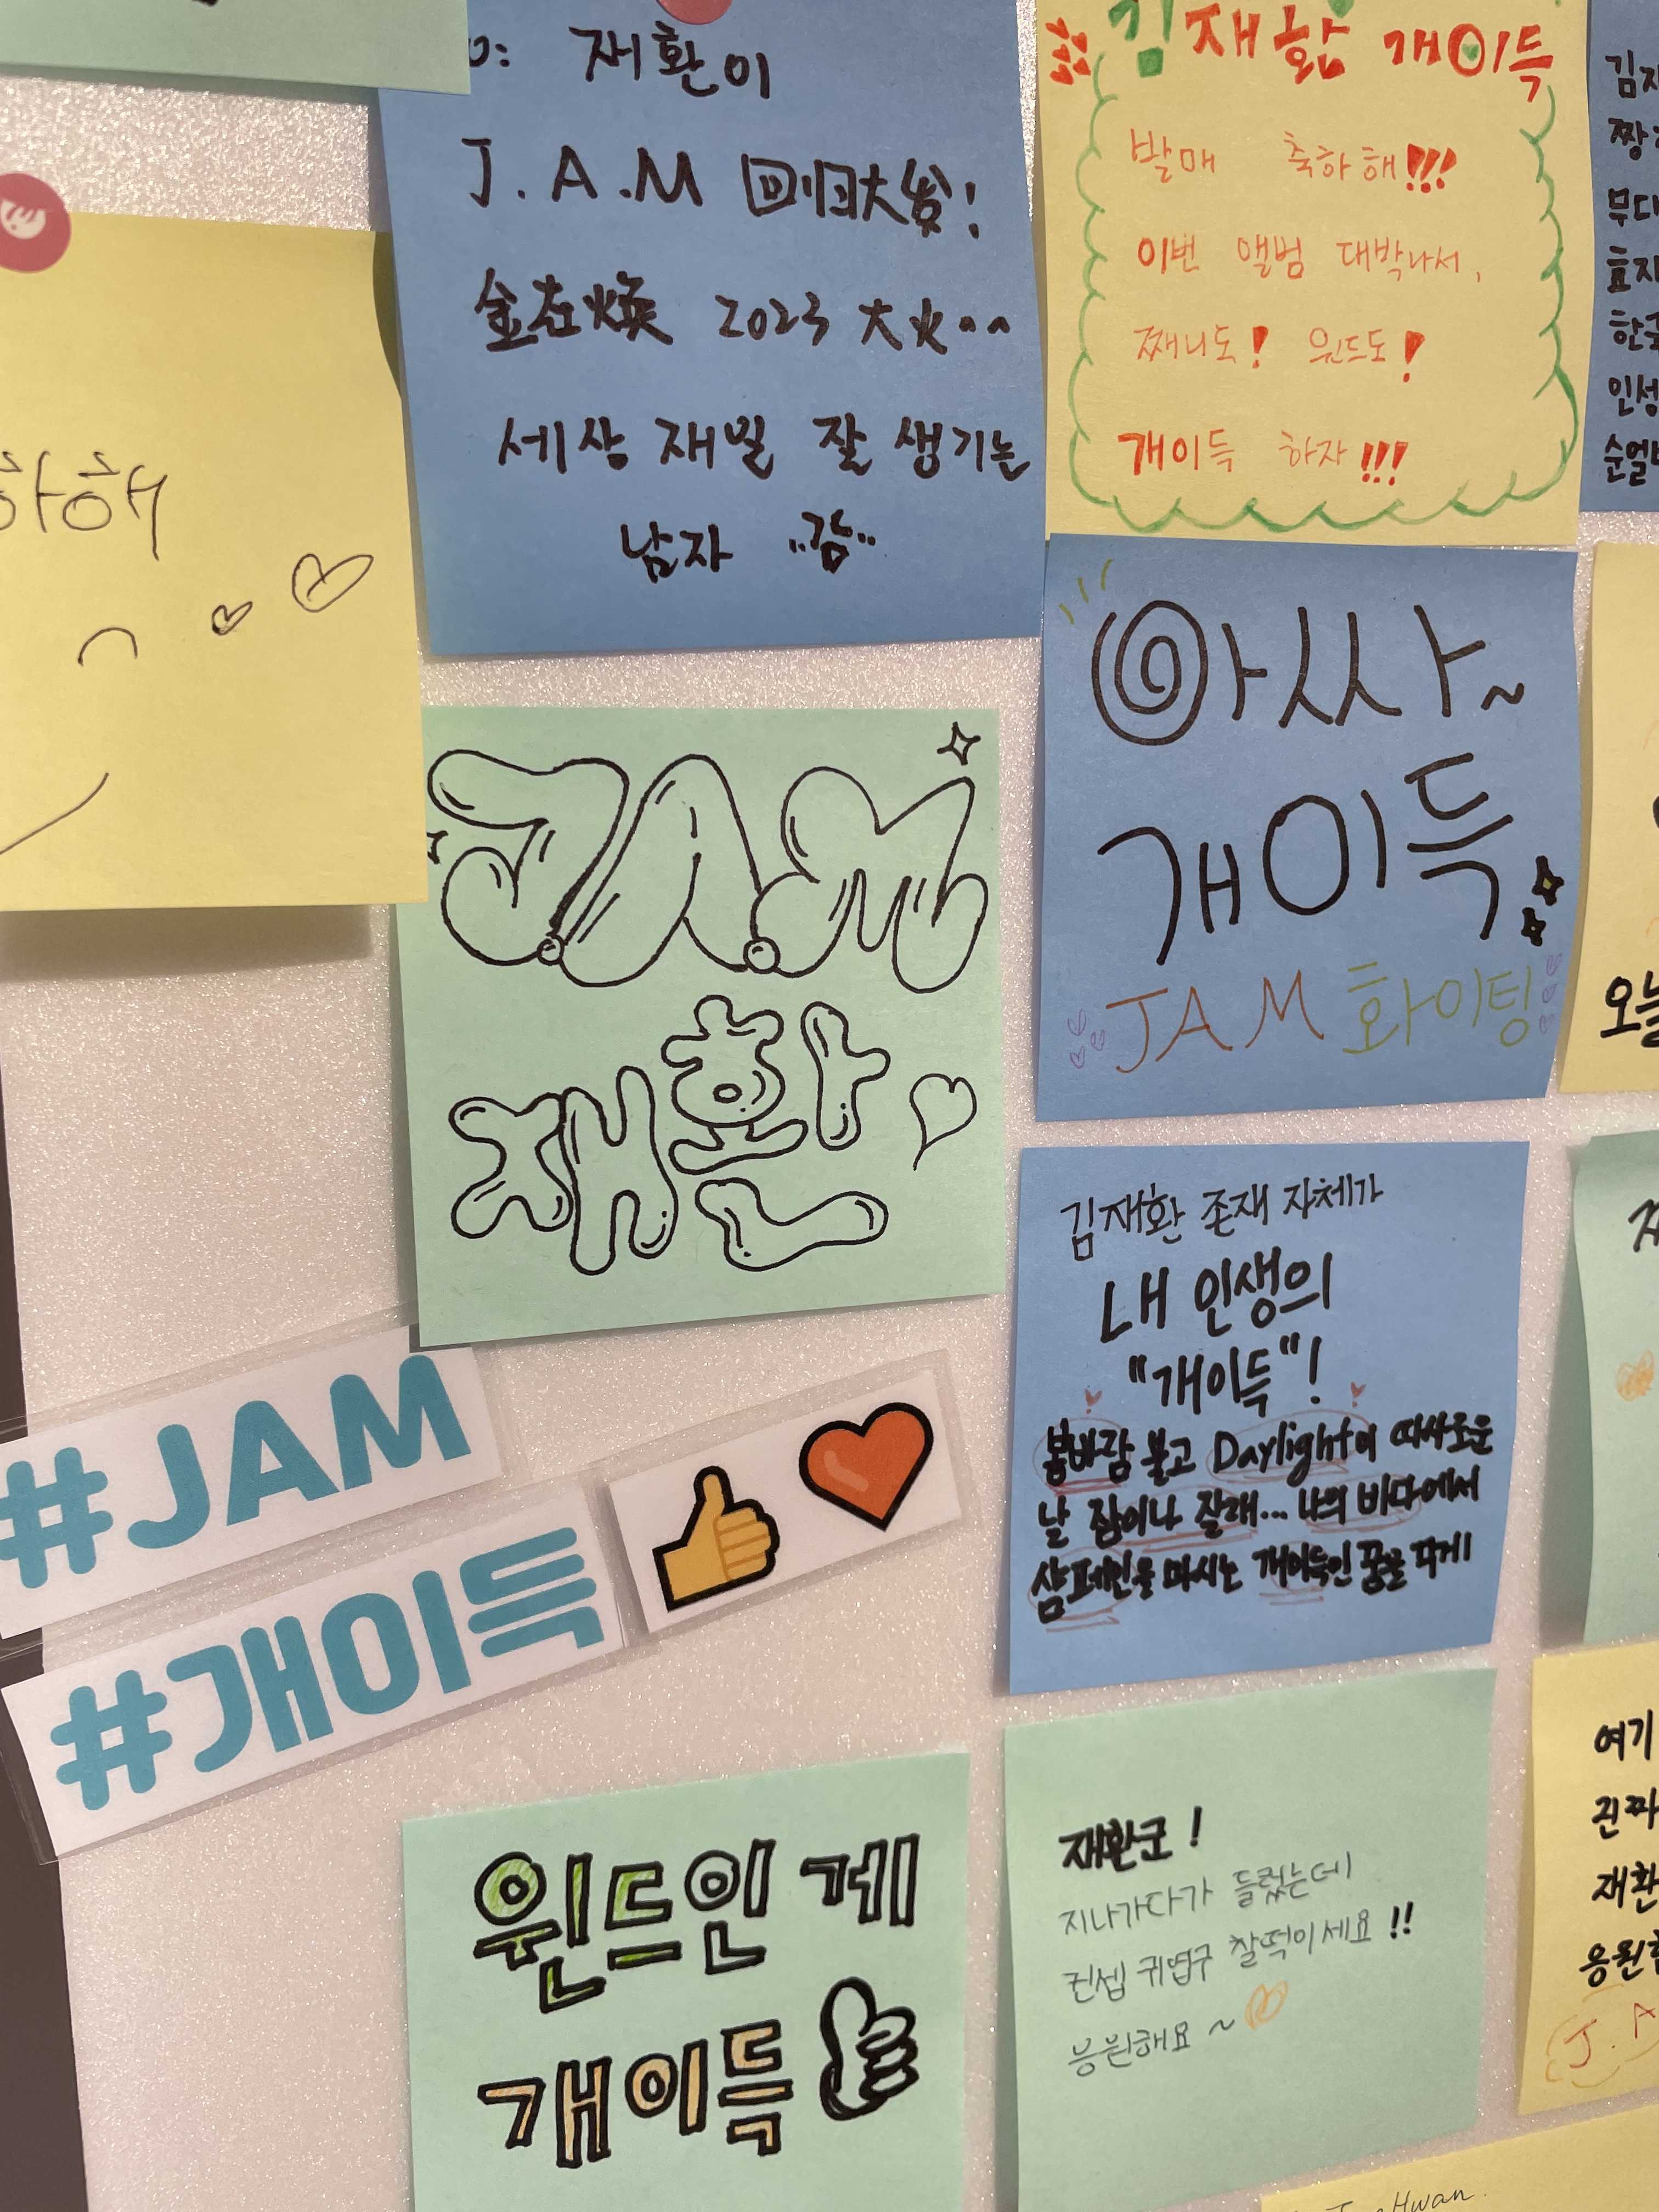 재환이
J.A.M 回归大发!
金在焕 2023 大火^^
세상 재빌 잘 생기는
남자
김재환 개이득
발매 축하해!!!
이번 앨범 대박나서,
째니도! 윈드도!
개이득 하자!!!
무대
한국
하해
아싸~
개이득
JAM 화이팅
JAM
재환
김재환 존재 자체가
내 인생의
"개이득"!
봄바람 불고 Daylight이 따사로운
날 잠이나 잘래... 나의 바다에서
샴페인을 마시는 개이득인 꿈을 꾸게
#JAM
#개이득
오늘
윈드인 게
개이득
재환군!
지나가다가 들렀는데
컨셉 귀엽구 찰떡이세요!!
응원해요~
여기
진짜
재환
응원
J.A
Hwan.